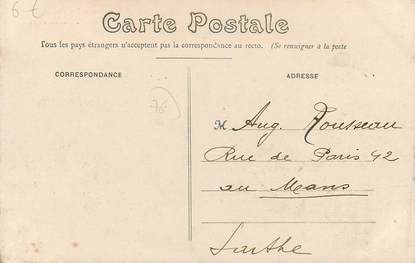 6€
Carte Postale
Tous les pays étrangers n'acceptent pas la correspondance au recto. (Se renseigner à la poste
CORRESPONDANCE
ADRESSE
M Aug. Rousseau
Rue de Paris 42
au Mans
Sarthe